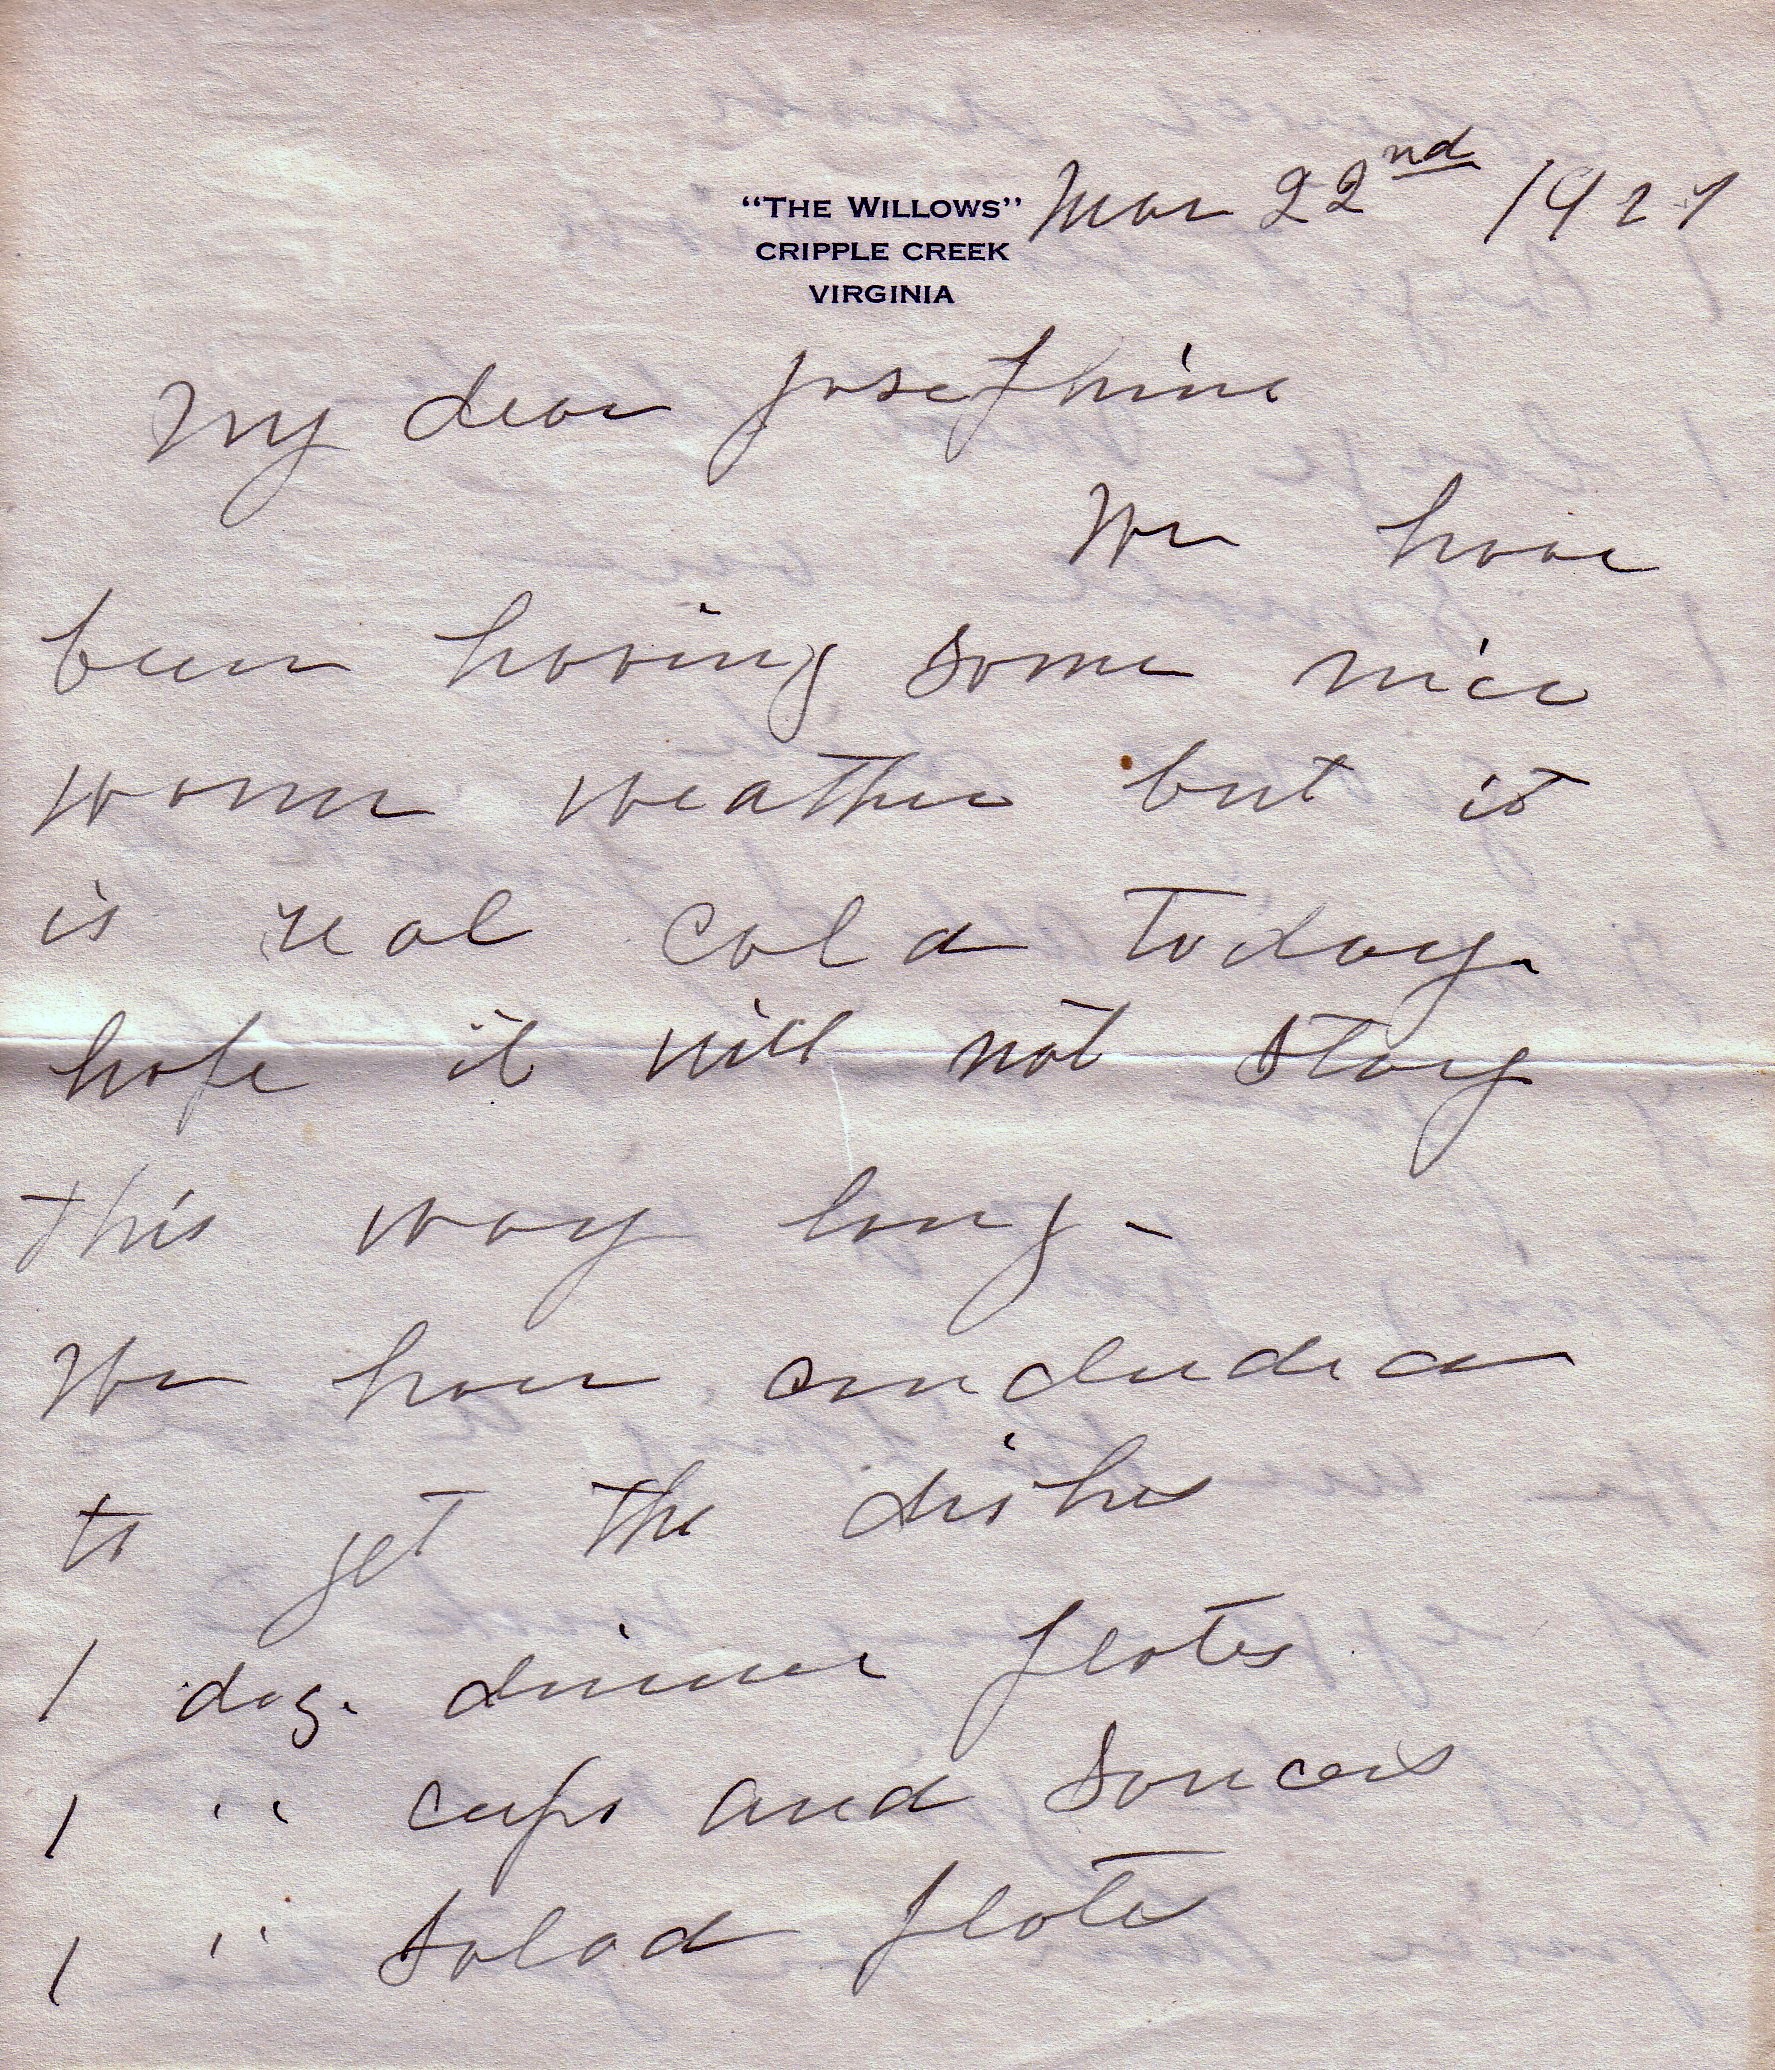 "THE WILLOWS"
CRIPPLE CREEK
VIRGINIA
Mar 22nd 1927
My dear Josephine
We have
been having some nice
warm weather but it
is real cold today.
hope it will not stay
this way long -
We have concluded
to get the dishes
1 doz. dinner plates
1 " cups and saucers
1 " salad plates